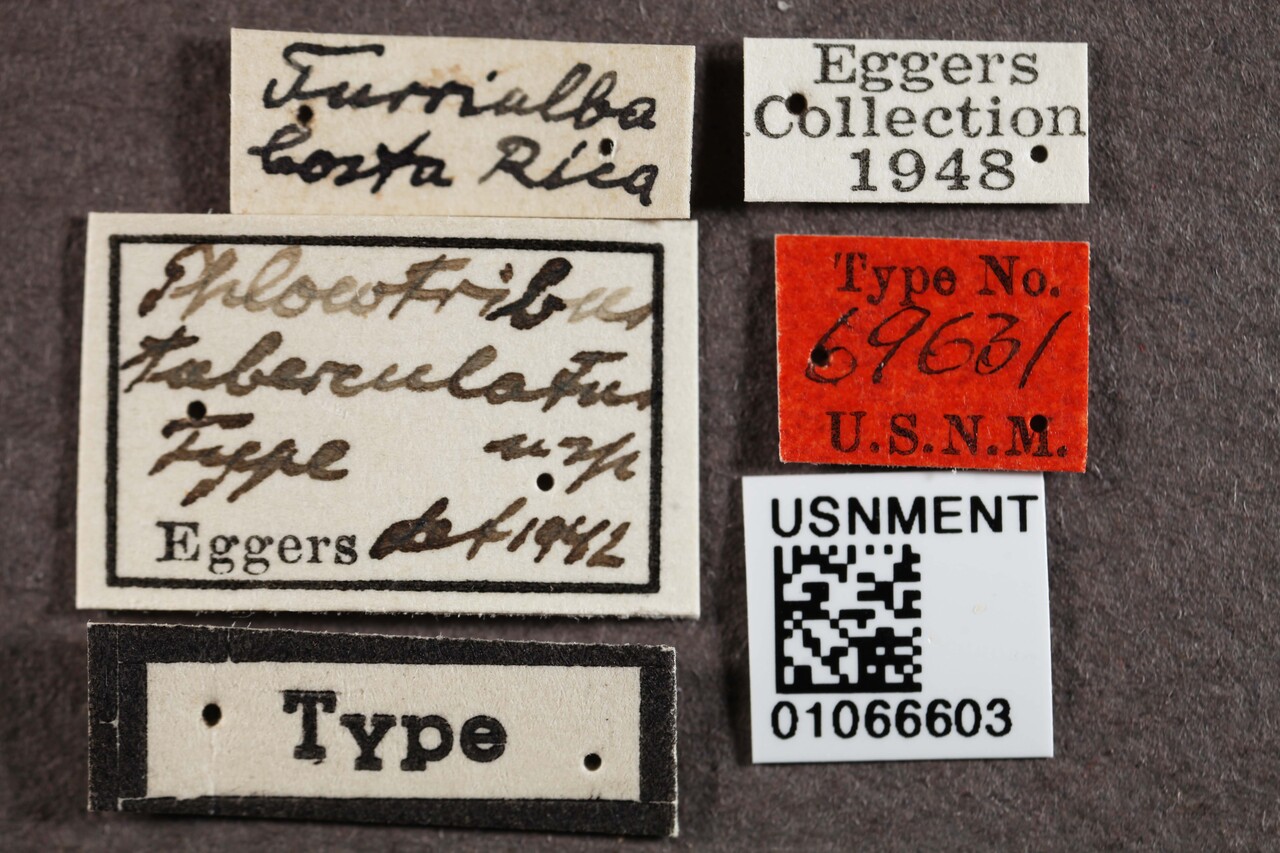 Turrialba
Costa Rica
Eggers
Collection
1948
Phloeotribus
tuberculatus
Type n sp
Eggers det 1942
Type No.
69631
U.S.N.M.
USNMENT
01066603
Type